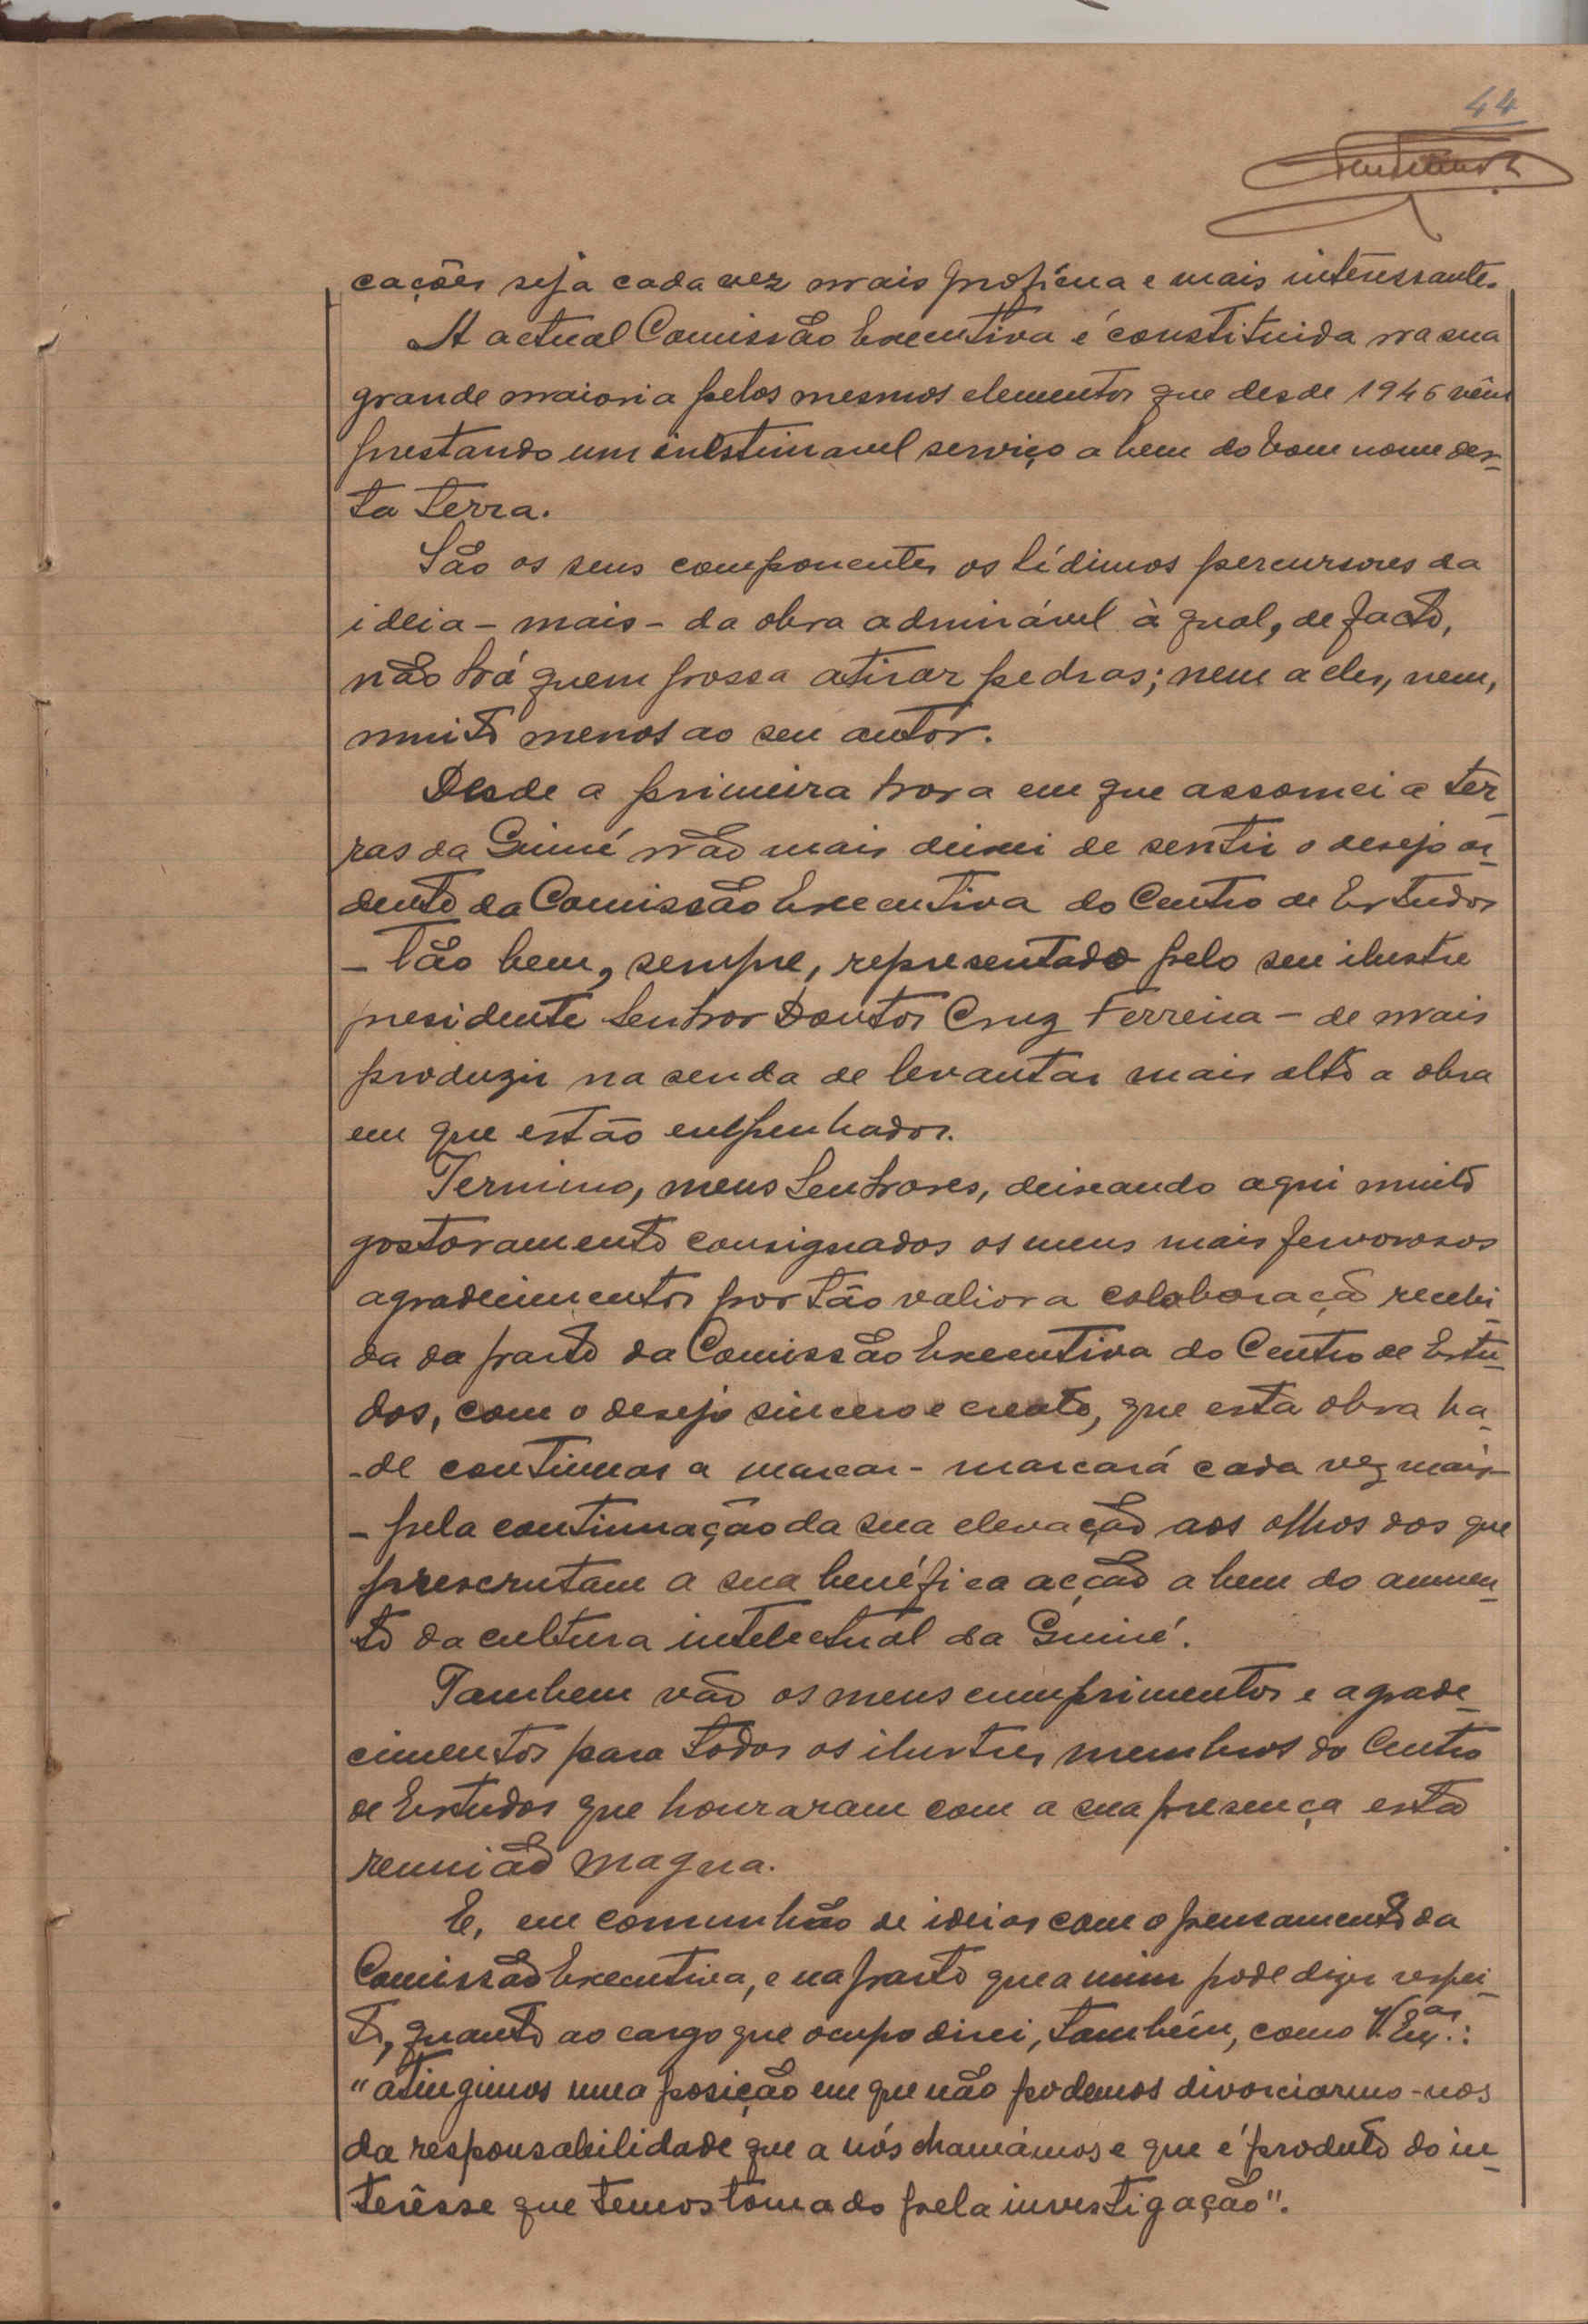 44
cações seja cada vez mais profícua e mais interessante.
A actual Comissão Executiva é constituida na sua
grande maioria pelos mesmos elementos que desde 1946 vêm
prestando um inestimavel serviço a bem do bom nome des-
ta terra.
São os seus componentes os lídimos percursores da
ideia - mais - da obra admirável à qual, de facto,
não há quem possa atirar pedras; nem a eles, nem,
muito menos ao seu autôr.
Desde a primeira hora em que assomei a ter-
ras da Guiné não mais deixei de sentir o desejo ar-
dente da Comissão Executiva do Centro de Estudos
- tão bem, sempre, representado pelo seu ilustre
presidente Senhor Doutor Cruz Ferreira - de mais
produzir na senda de levantar mais alto a obra
em que estão empenhados.
Termino, meus Senhores, deixando aqui muito
gostosamente consignados os meus mais fervorosos
agradecimentos por tão valiosa colaboração recebi-
da da parte da Comissão Executiva do Centro de Estu-
dos, com o desejo sincero e crente, que esta obra ha-
-de continuar a marcar - marcará cada vez mais -
- pela continuação da sua elevação aos olhos dos que
prescrutam a sua benéfica acção a bem do aumen-
to da cultura intelectual da Guiné.
Tambem vão os meus cumprimentos e agrade-
cimentos para todos os ilustres membros do Centro
de Estudos que honraram com a sua presença esta
reunião magna.
E, em comunhão de ideias com o pensamento da
Comissão Executiva, e na parte que a mim pode dizer respei-
to, quanto ao cargo que ocupo direi, também, como V. Ex.as:
"atingimos uma posição em que não podemos divorciarmo-nos
da responsabilidade que a nós chamámos e que é produto do in-
terêsse que temos tomado pela investigação".